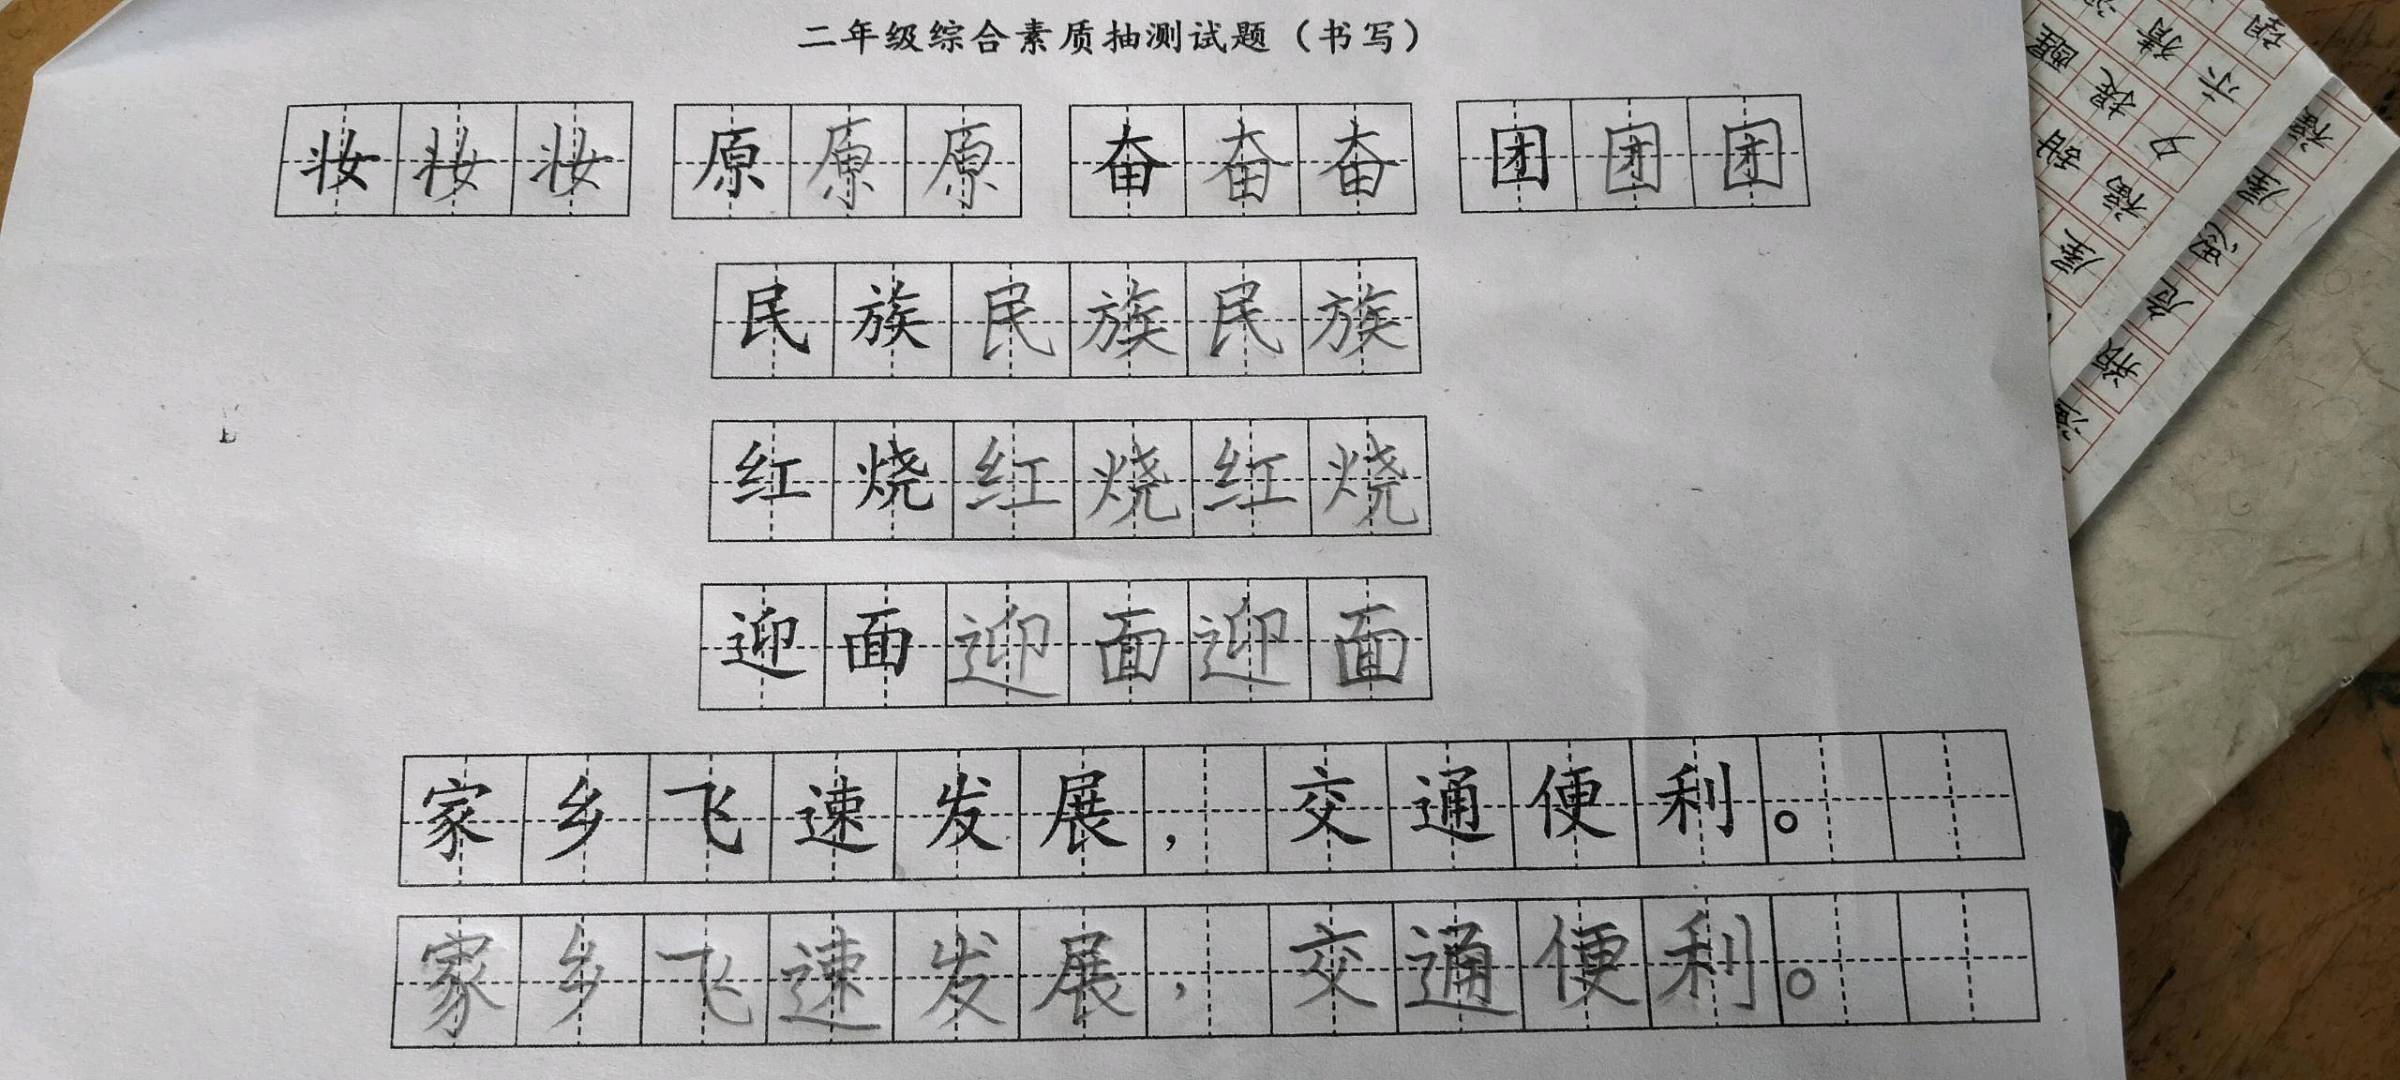 二年级综合素质抽测试题（书写）
妆妆妆 原原原 奋奋奋 团团团
民族民族民族
红烧红烧红烧
迎面迎面迎面
家乡飞速发展，交通便利。
家乡飞速发展，交通便利。